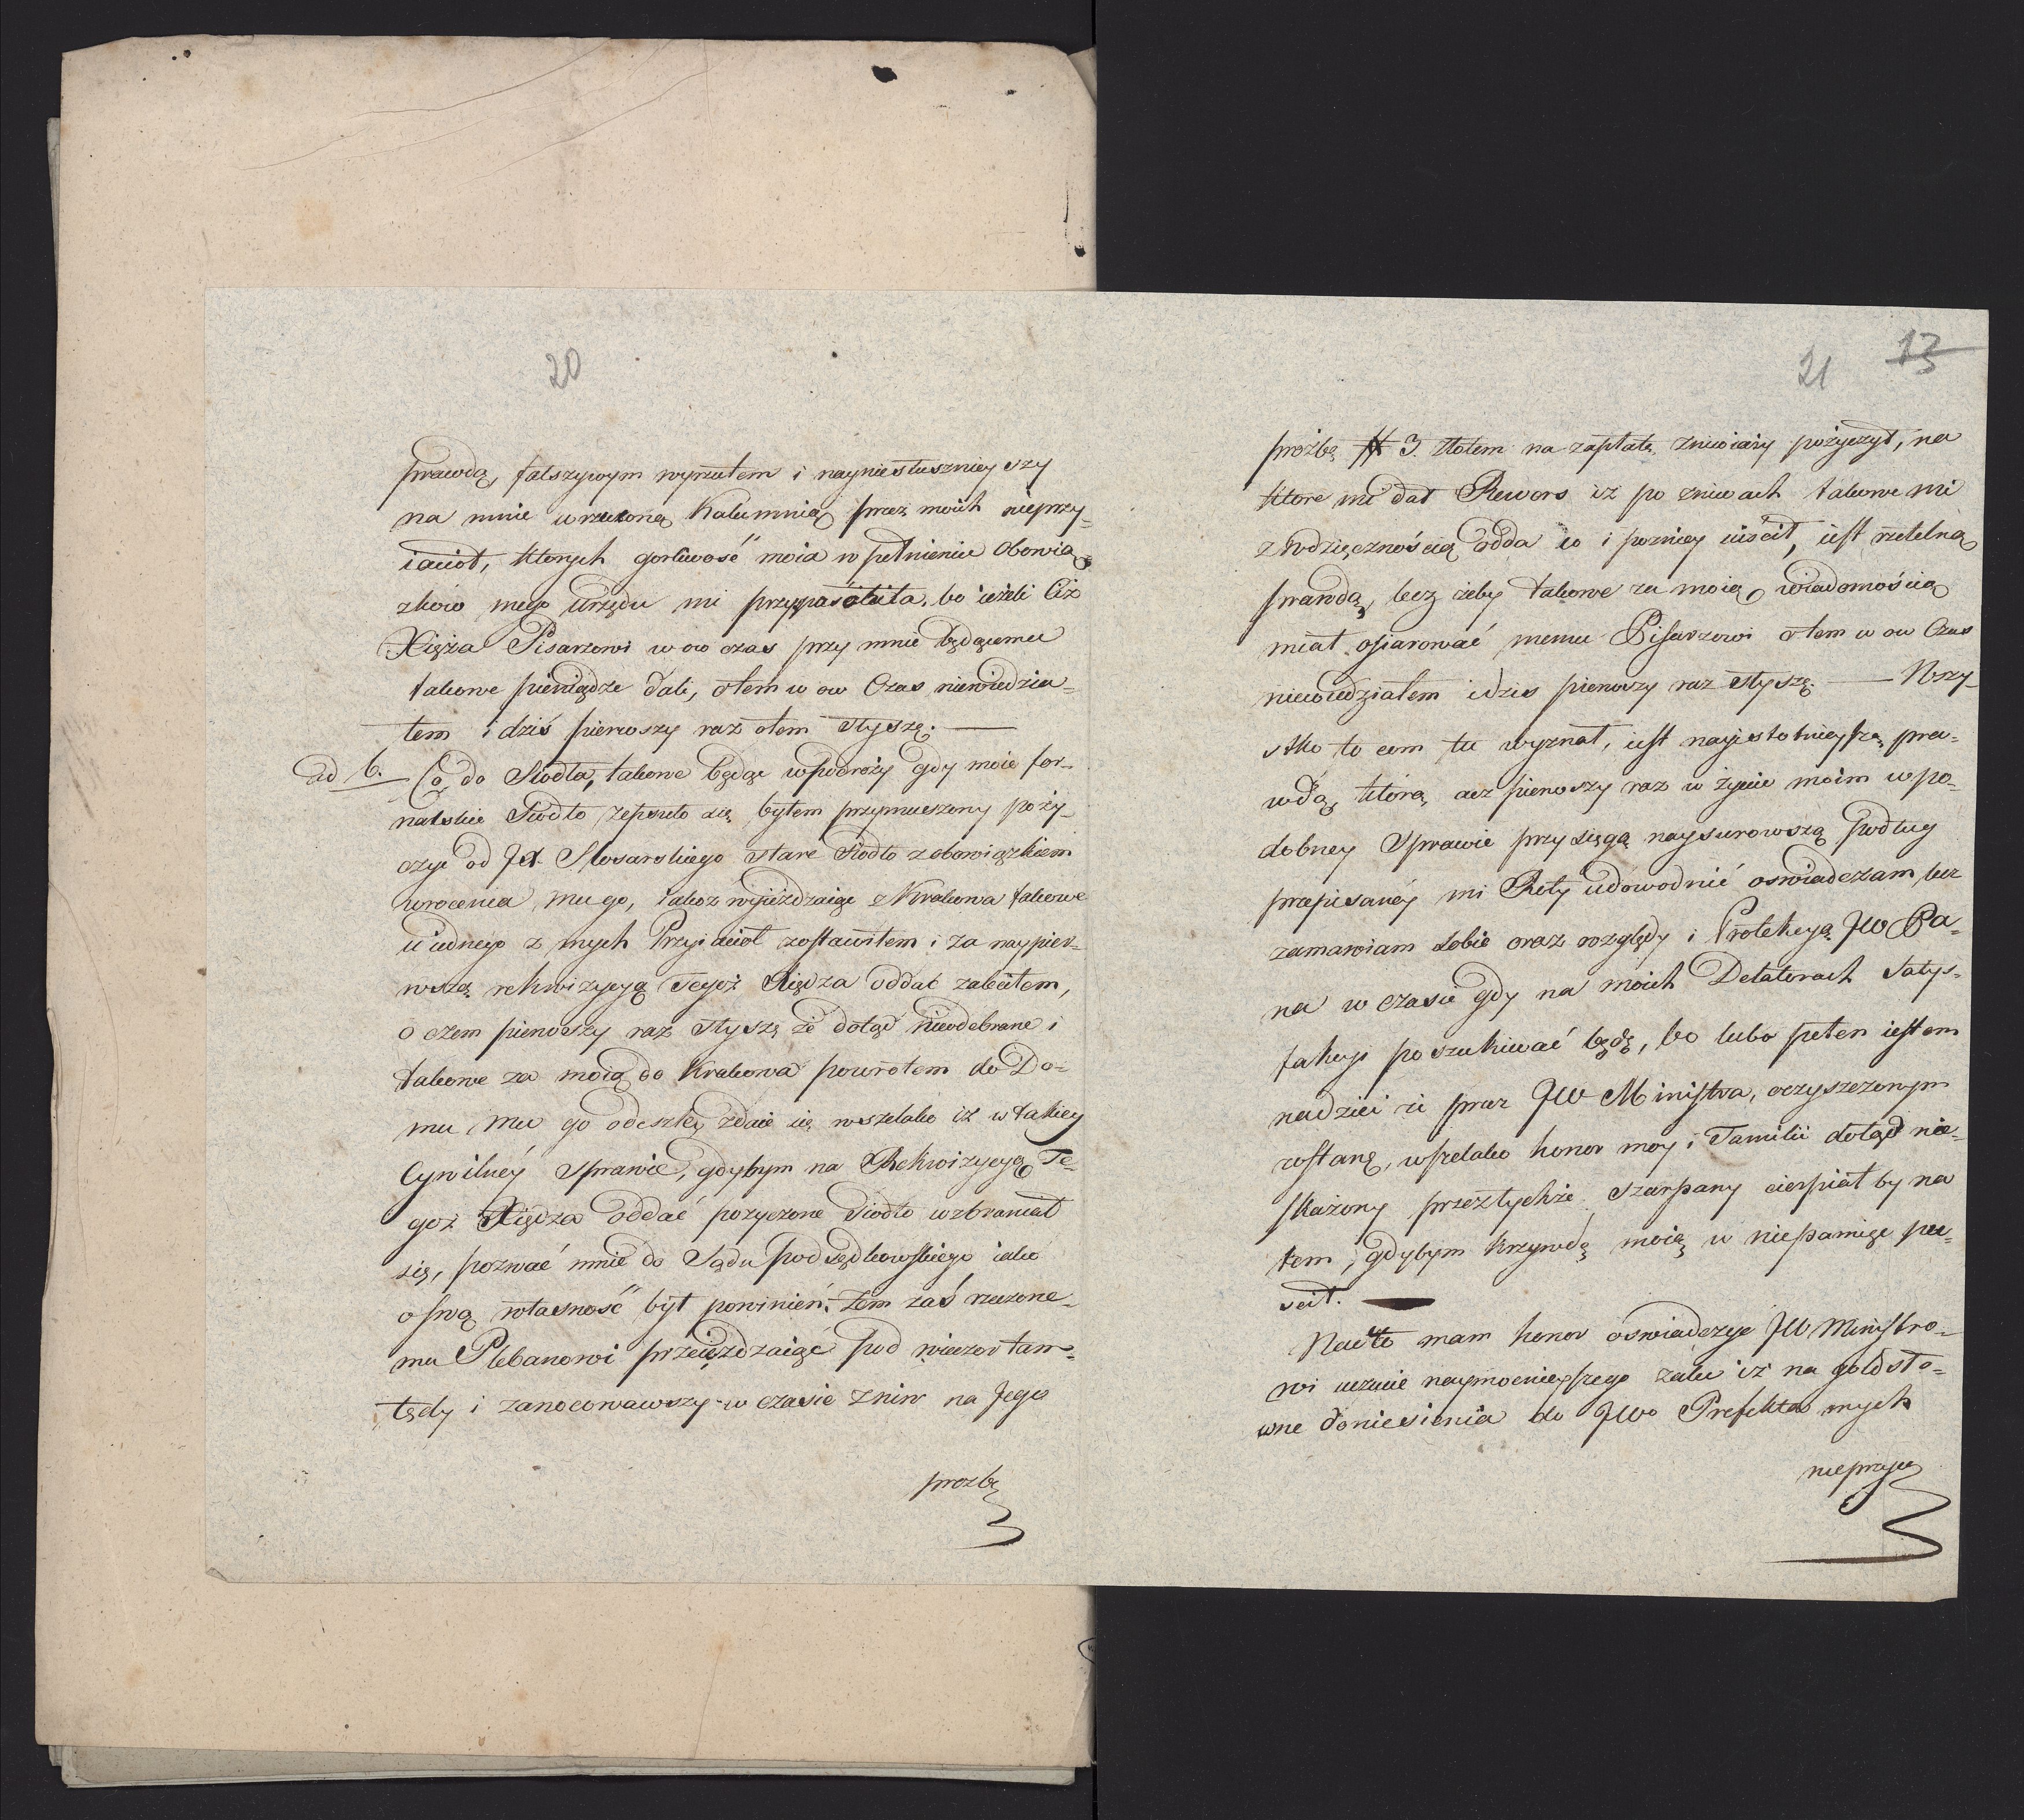 20
prawdą, fałszywym wyrzutem i nayniesłuszniey szy
na mnie wrzuconą Kalumnią przez moich nieprzy-
iaciół, ktorych gorliwość moia w pełnieniu Obowią
zkow mego Urzędu mi przysposobiła, bo ieżeli Ciż
Xięża Pisarzowi w ow czas przy mnie będącemu
takowe pieniądze dali, otem w ow Czas niewiedzia-
łem i dziś pierwszy raz otem słyszę. —
ad 6. Co do Siodła, takowe będąc w podroży gdy moie for-
nalskie Siodło zepsuło się, byłem przymuszony poży-
czyć od JX Slosarskiego stare Siodło z obowiązkiem
wrocenia mu go, iakoż wyieżdzaiąc z Krakowa takowe
u iednego z mych Przyiacioł zostawiłem i za naypier-
wszą rekwizycyą Tegoż Xiędza oddać zaleciłem,
o czem pierwszy raz słyszę że dotąd nieodebrane i
takowe za moią do Krakowa powrotem do Do-
mu mu go odeszlę, zdaie się wszelako iż w takiey
Cywilney Sprawie, gdybym na Rekwizycyą Te-
goż Xiędza oddać pozyczone Siodło wzbraniał
się, pozwać mnie do Sądu podsędkowskiego iako
o swą własność był powinien. Tem zaś rzeczone-
mu Plebanowi przeieżdzaiąc pod wieczor tam-
tędy i zanocowawszy w czasie żniw na Jego
prozbę
21 13
prożbę # 3. złotem na zapłatę żniwiarzy pożyczył, na
ktore mi dał Rewers iż po żniwach takowe mi
z wdzięcznością odda co i poźniey uiścił, iest rzetelną
prawdą, lecz żeby takowe za moią wiadomością
miał ofiarować memu Pisarzowi otem w ow Czas
niewiedziałem i dzis pierwszy raz słyszę. — Wszy-
stko to com tu wyznał, iest nayistotnieyszą pra-
wdą, ktorą acz pierwszy raz w życiu moim w po-
dobney Sprawie przysięgą naysurowszą podług
przepisaney mi Roty udowodnić oswiadczam, lecz
zamawiam sobie oraz względy i Protekcyą JW Pa-
na w czasie gdy na moich Delatorach Satys-
fakcyi poszukiwać będę, bo lubo pełen iestem
nadziei iż przez JW Ministra, oczyszczonym
zostanę, wszelako honor moy i Familii dotąd nie-
skażony przez tychże szarpany cierpiał by na
tem, gdybym krzywdę moią w niepamięć pu-
ścił. —
Nadto mam honor oświadczyć JW Ministro-
wi uczucie naymocnieyszego żalu iż na gołosło-
wne doniesienia do JWo Prefekta mych
nieprzyia